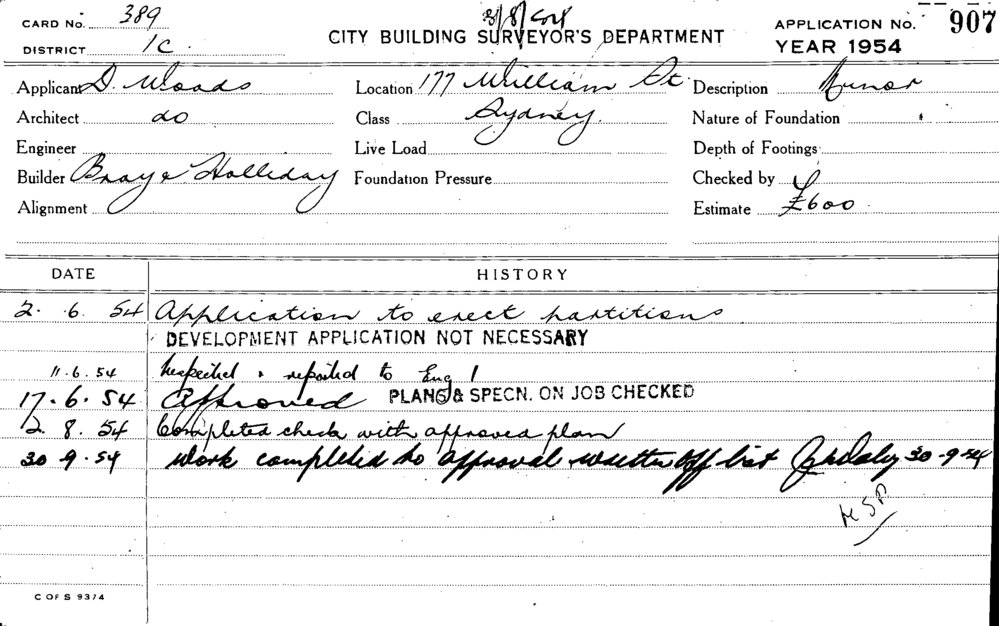 CARD No. 389
DISTRICT 1C.
CITY BUILDING SURVEYOR'S DEPARTMENT
APPLICATION No. 907
YEAR 1954
Applicant D. Woods Location 177 William St Description Minor
Architect do Class Sydney. Nature of Foundation
Engineer Live Load Depth of Footings
Builder Bray & Holliday Foundation Pressure Checked by
Alignment Estimate £600
DATE HISTORY
2. 6. 54 Application to erect partitions
DEVELOPMENT APPLICATION NOT NECESSARY
11.6.54 Inspected & reported to Eng 1
17.6.54 Approved PLANS & SPECN. ON JOB CHECKED
2. 8. 54 Completed check with approved plan
30-9-54 Work completed to approval written off list 30-9-54
C OF S 93/4